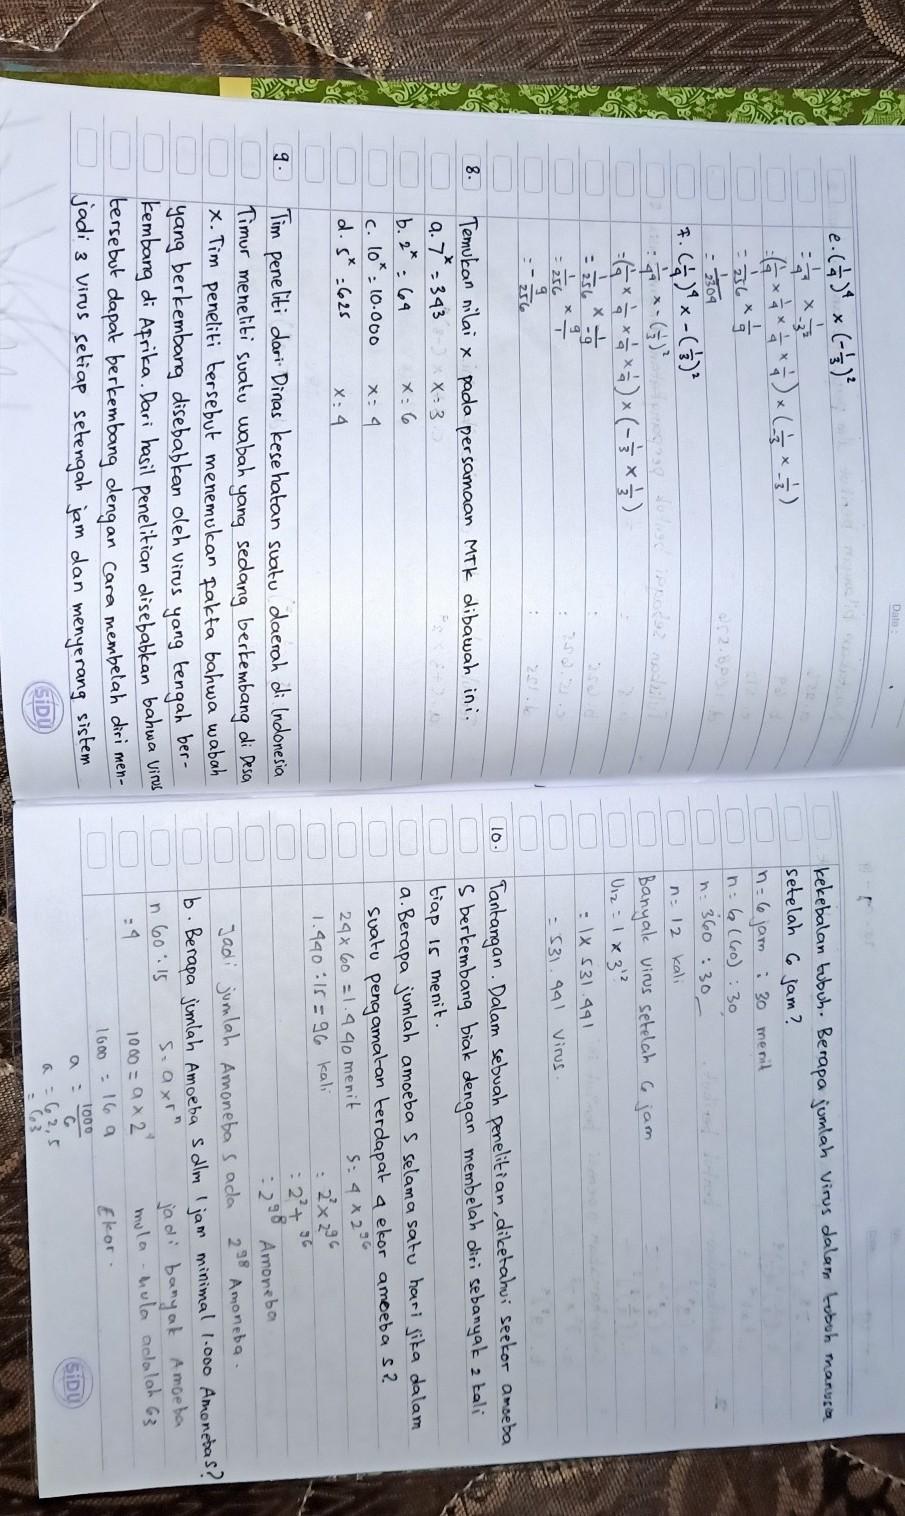 e. (1/4)⁴ × (-1/3)²
= 1/4⁴ × 1/-3²
= (1/4 × 1/4 × 1/4 × 1/4) × (1/-3 × 1/-3)
= 1/256 × 1/9
= 1/2304
f. (1/4)⁴ × -(1/3)²
= 1/4⁴ × -(1/3)²
= (1/4 × 1/4 × 1/4 × 1/4) × (-1/3 × 1/3)
= 1/256 × 1/-9
= 1/256 × 9/1
= -9/256
8. Temukan nilai x pada persamaan MTK dibawah ini.
a. 7ˣ = 343 x = 3
b. 2ˣ = 64 x = 6
c. 10ˣ = 10.000 x = 4
d. 5ˣ = 625 x = 4
9. Tim peneliti dari Dinas kesehatan suatu daerah di Indonesia
Timur meneliti suatu wabah yang sedang berkembang di Desa
X. Tim peneliti tersebut menemukan fakta bahwa wabah
yang berkembang disebabkan oleh virus yang tengah ber-
kembang di Afrika. Dari hasil penelitian disebabkan bahwa virus
tersebut dapat berkembang dengan cara membelah diri men-
jadi 3 virus setiap setengah jam dan menyerang sistem
SIDU
Date :
kekebalan tubuh. Berapa jumlah virus dalam tubuh manusia
setelah 6 jam?
n = 6 jam : 30 menit
n = 6 (60) : 30
n = 360 : 30
n = 12 kali
Banyak virus setelah 6 jam
U₁₂ = 1 × 3¹²
= 1 × 531.441
= 531.441 virus.
10. Tantangan. Dalam sebuah penelitian, diketahui seekor amoeba
S berkembang biak dengan membelah diri sebanyak 2 kali
tiap 15 menit.
a. Berapa jumlah amoeba S selama satu hari jika dalam
suatu pengamatan terdapat 4 ekor amoeba S?
24 × 60 = 1.440 menit S = 4 × 2⁹⁶
1.440 : 15 = 96 kali = 2² × 2⁹⁶
= 2²⁺⁹⁶
= 2⁹⁸ Amoneba
Jadi jumlah Amoneba S ada 2⁹⁸ Amoneba.
b. Berapa jumlah Amoeba S dlm 1 jam minimal 1.000 Amonebas?
n 60 : 15 S = a × rⁿ jadi banyak Amoeba
= 4 1000 = a × 2⁴ mula - mula adalah 63
1000 = 16 a Ekor.
a = 1000/6
a = 62,5
= 63
SIDU